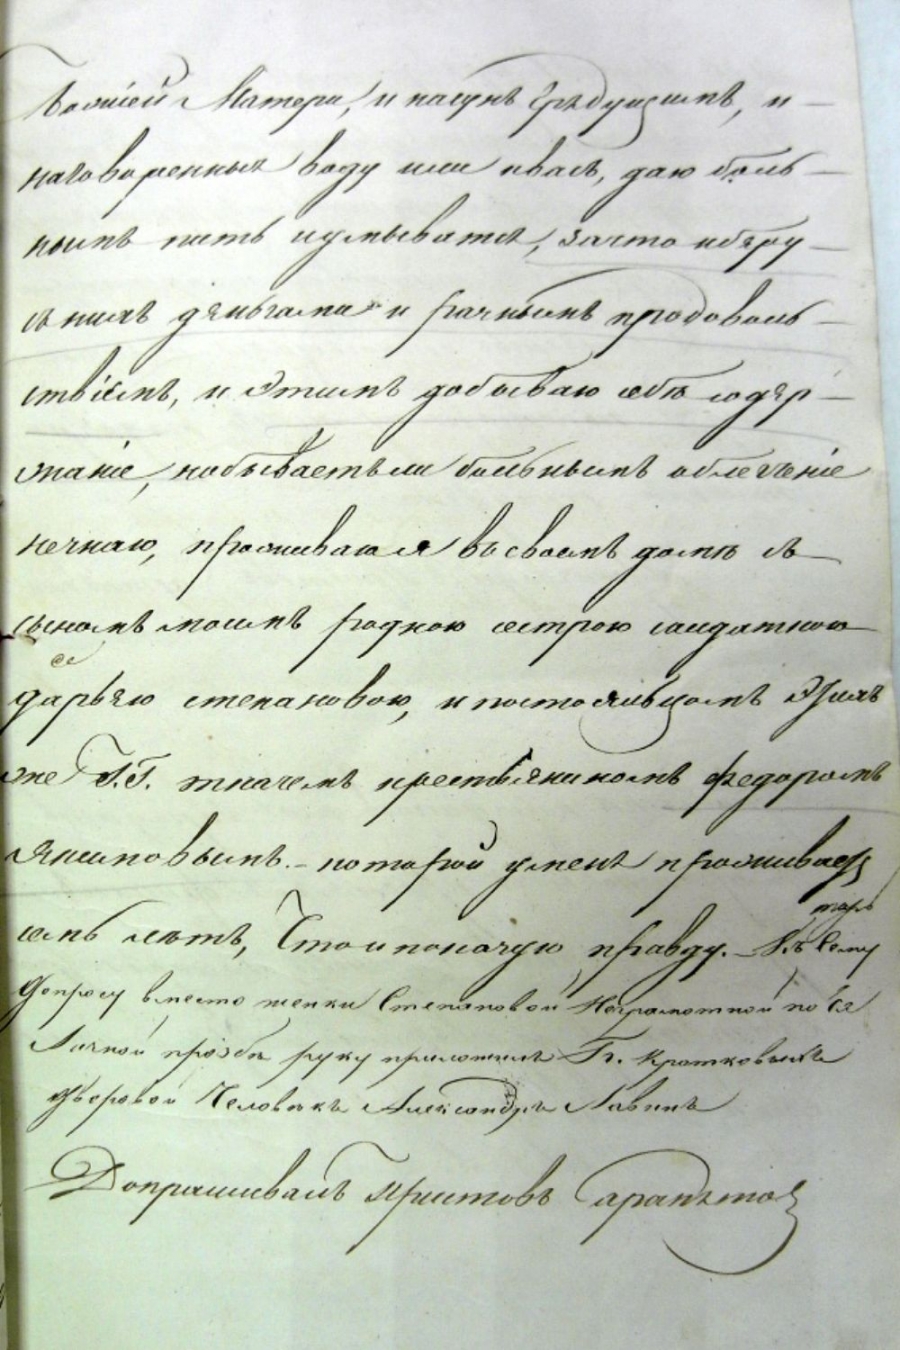 Божіей Матери, и пагубъ грѣдущимъ, и
наговоренныя воду или квасъ, даю боль-
нымъ пить и умыватся, зачто и беру
съ нихъ деньгами и рачнымъ продоволь-
ствіемъ, и этимъ добываю себѣ содер-
жаніе, но бываетъ ли больнымъ облегченіе
не знаю, проживаю я въ своемъ домѣ съ
сыномъ моимъ родною сестрою салдаткою
Дарьею Степановою, и постояльцомъ
же Г.Г. ткачемъ крестьяниномъ Федоромъ
Якимовымъ. которой у меня проживаетъ
семь летъ, Что и показую правду. Къ сему
Допросу вместо женки Степановой Неграмотной по Ея
Личной прозбѣ руку приложилъ Гг. Кротковыхъ
дворовой Человѣкъ Александръ Лавинъ
Допрашивалъ Приставъ